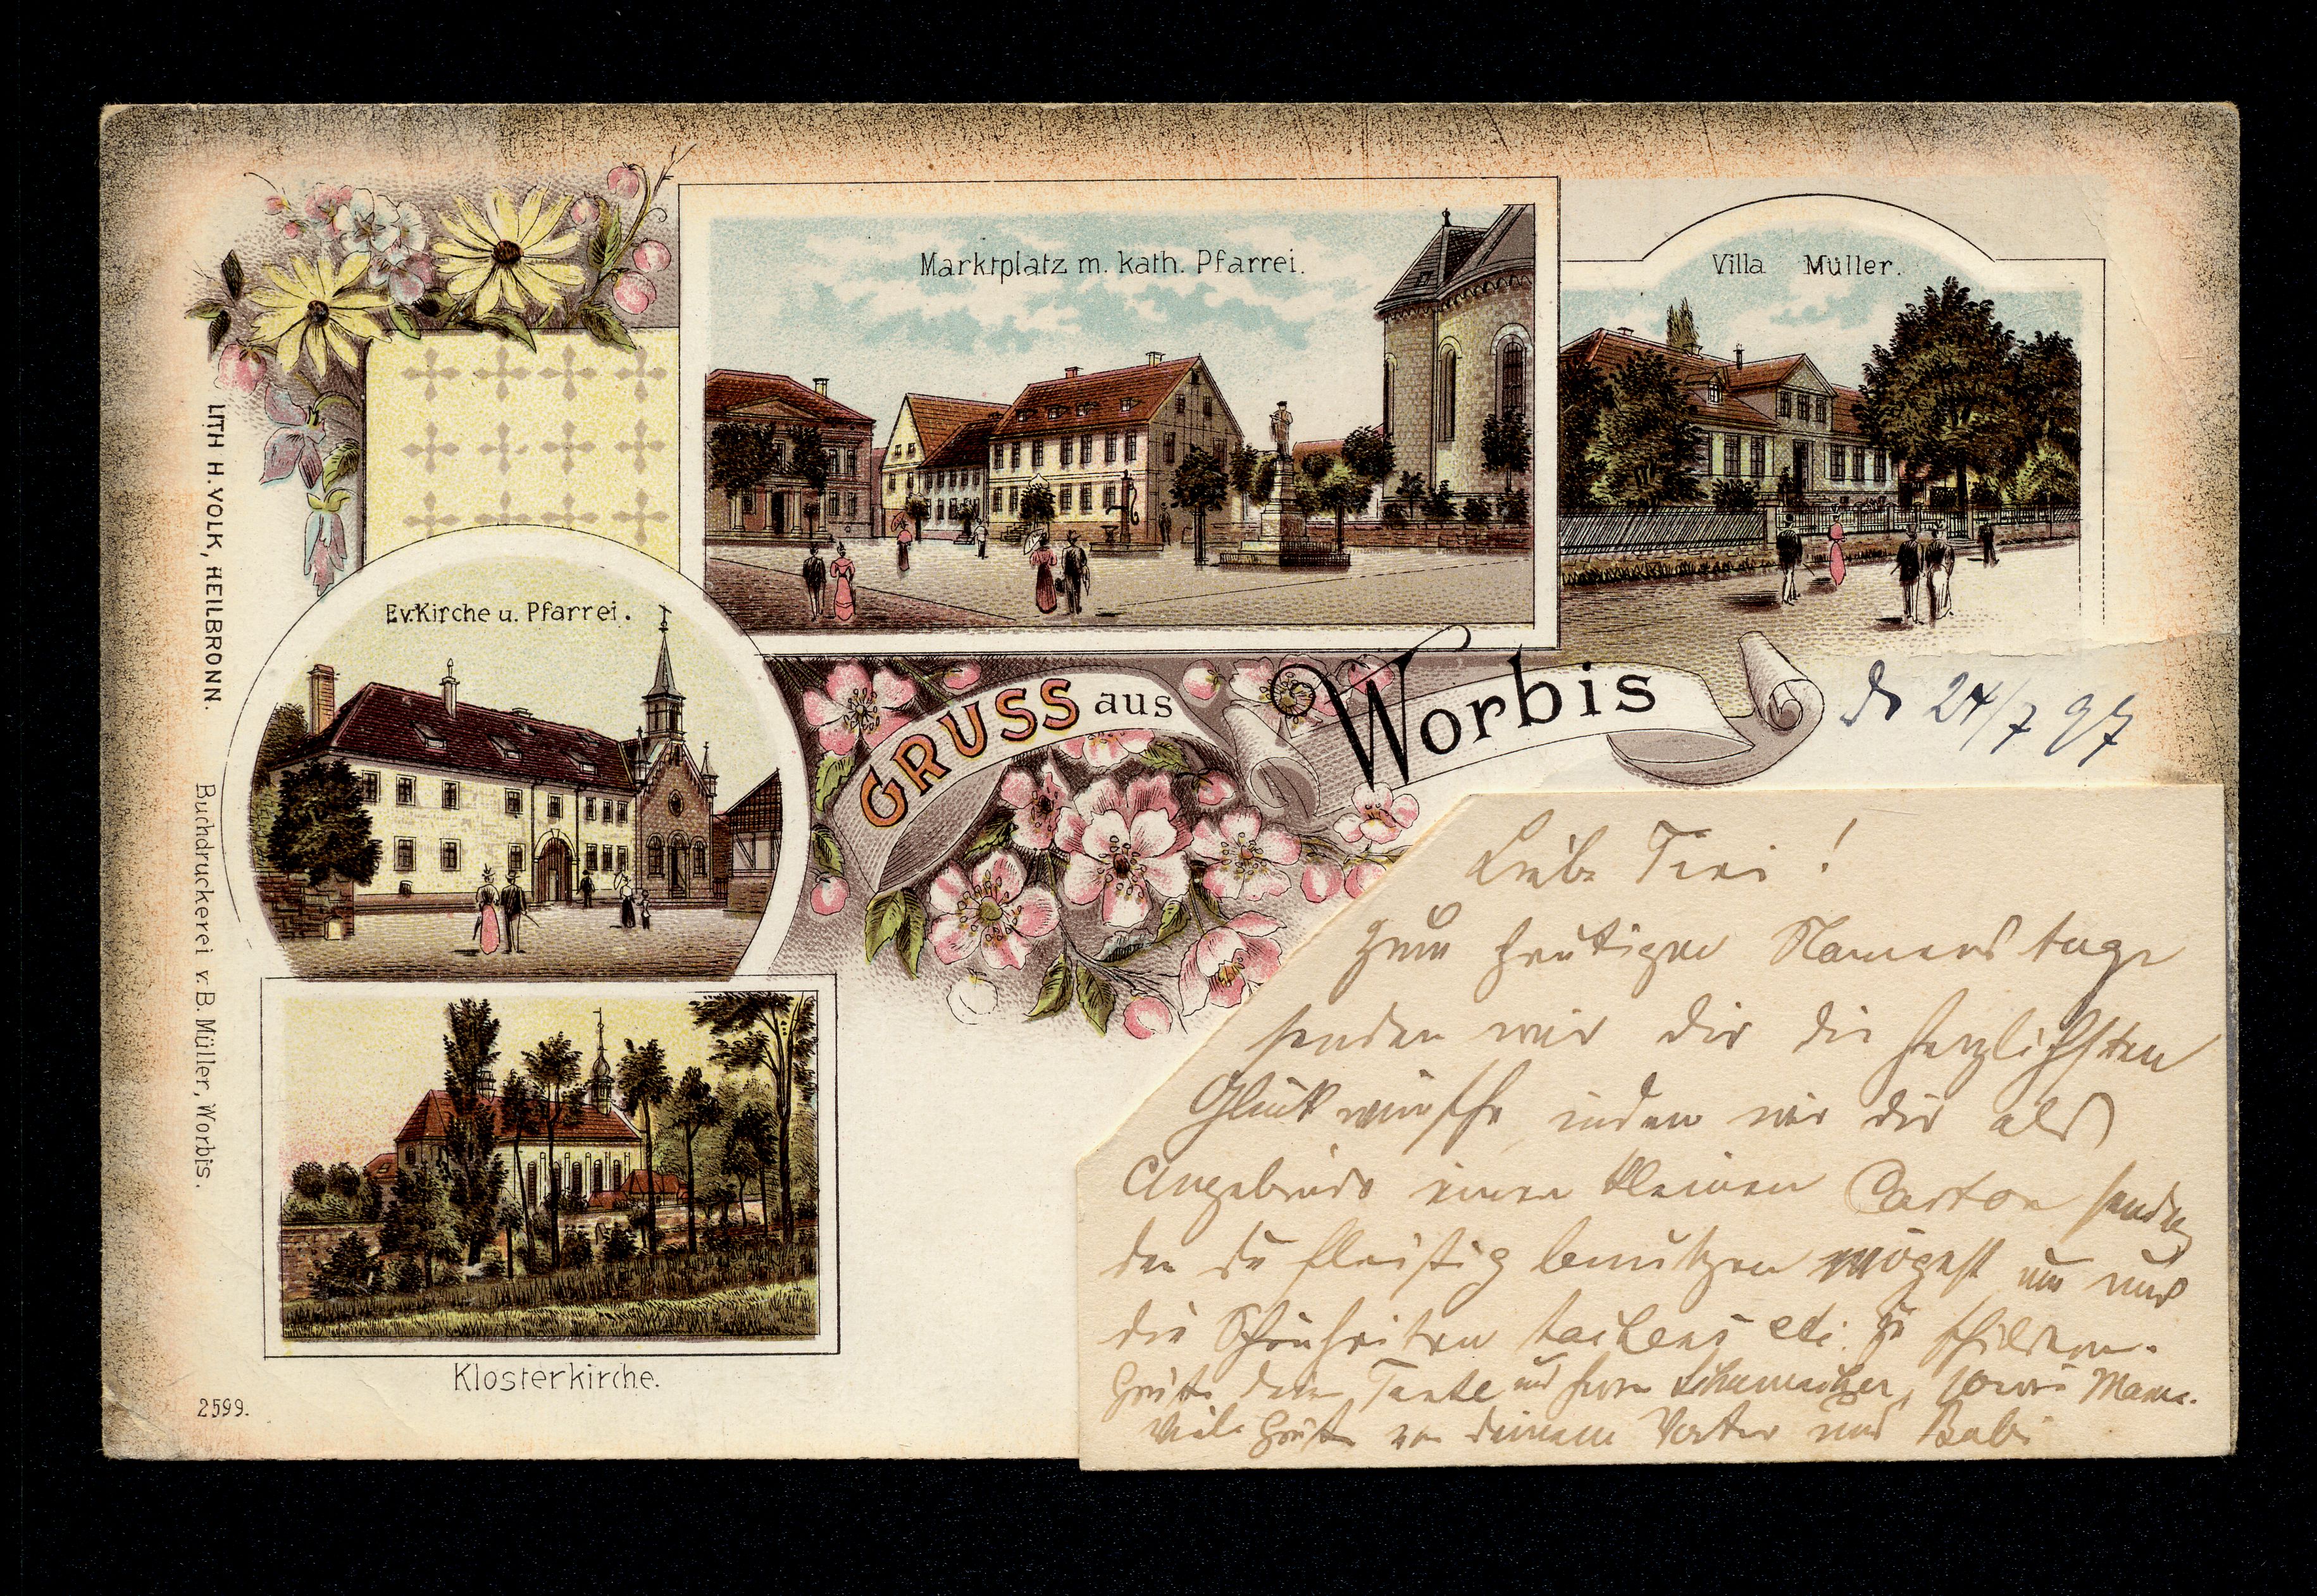 Marktplatz m. kath. Pfarrei.
Villa Müller.
Ev. Kirche u. Pfarrei.
GRUSS aus Worbis
d 24/7 97
LITH H. VOLK, HEILBRONN.
Buchdruckerei v. B. Müller, Worbis.
Klosterkirche.
2599.
Liebe !
Zum heutigen Namenstage
senden wir dir die herzlichsten
Glückwünsche, indem wir dir als
Angebinde einen kleinen Carton senden
den du fleißig benutzen mögest um uns
die Schönheiten etc. zu schildern.
Grüße deine Tante und Herrn Schumacher, sowie Mama.
Viele Grüße von deinem Vater und